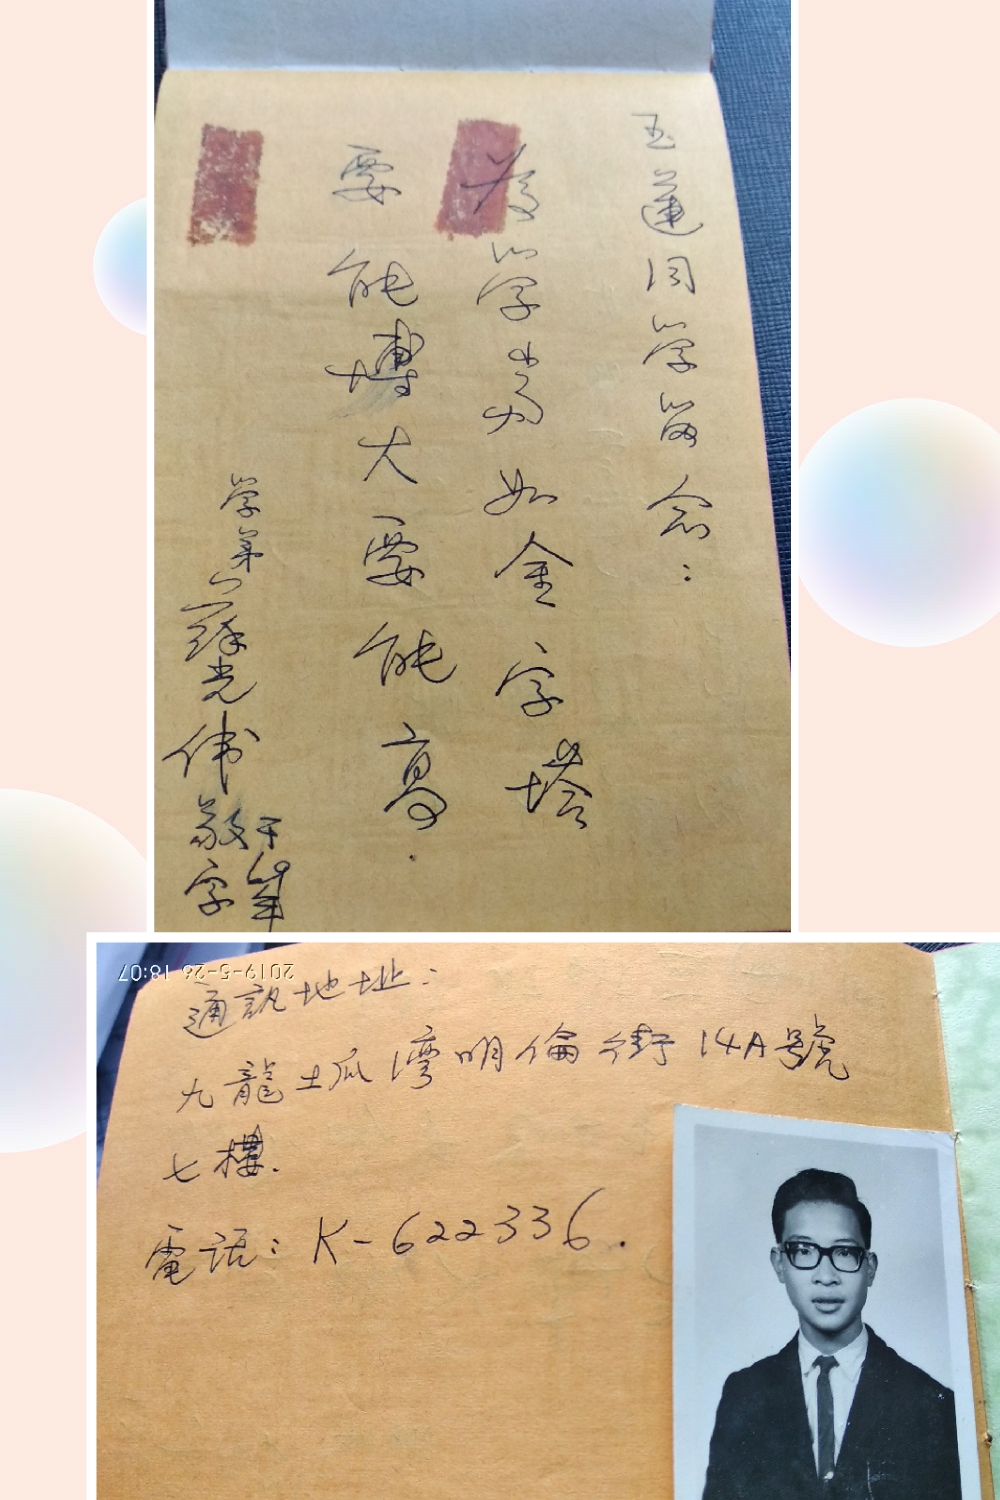 玉蓮同学留念：
為学当如金字塔
要能博大要能高．
学弟
蘇光伟敬字
于
2019-5-26 18:07
通訊地址：
九龍土瓜湾明倫街14A號
七樓．
電话：K-622336．